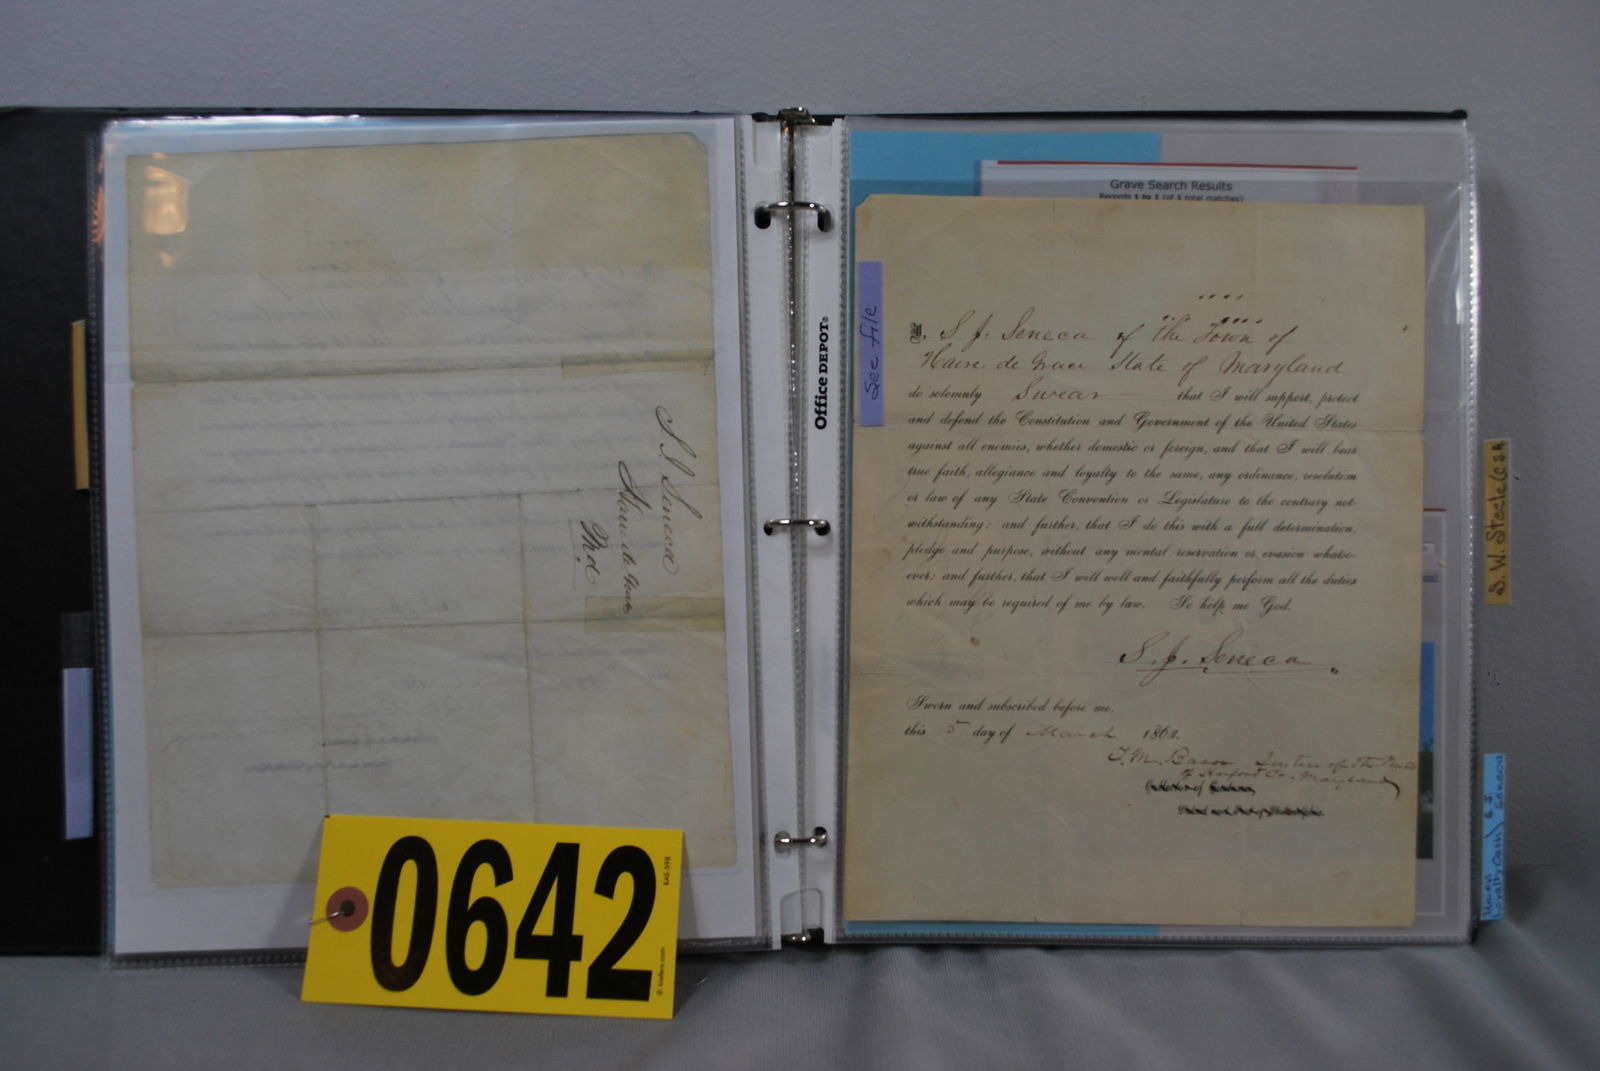 S J Seneca
Havre de Grace
Md
0642
KAS-598
© koehlers.com
Office DEPOT
Grave Search Results
Records 1 to 1 (of 1 total matches)
See file
I, S. J. Seneca of the Town of
Havre de Grace State of Maryland
do solemnly Swear that I will support, protect
and defend the Constitution and Government of the United States
against all enemies, whether domestic or foreign, and that I will bear
true faith, allegiance and loyalty to the same, any ordinance, resolution
or law of any State Convention or Legislature to the contrary not-
withstanding; and further, that I do this with a full determination,
pledge and purpose, without any mental reservation or evasion whatso-
ever; and further, that I will well and faithfully perform all the duties
which may be required of me by law. So help me God.
S. J. Seneca
Sworn and subscribed before me,
this 5 day of March 1863.
T. M. Bacon Justice of the Peace
of Harford Co. Maryland
S. W. Steele CSA
Union S. J.
Loyalty Oath Seneca